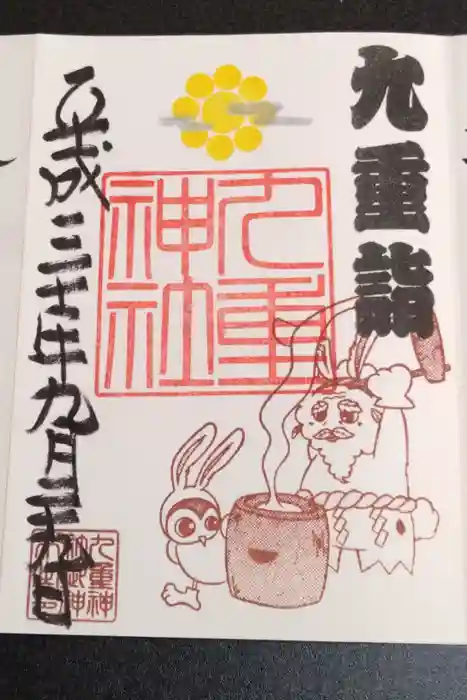 九重詣
九重
神社
平成三十年九月二十日
九重神